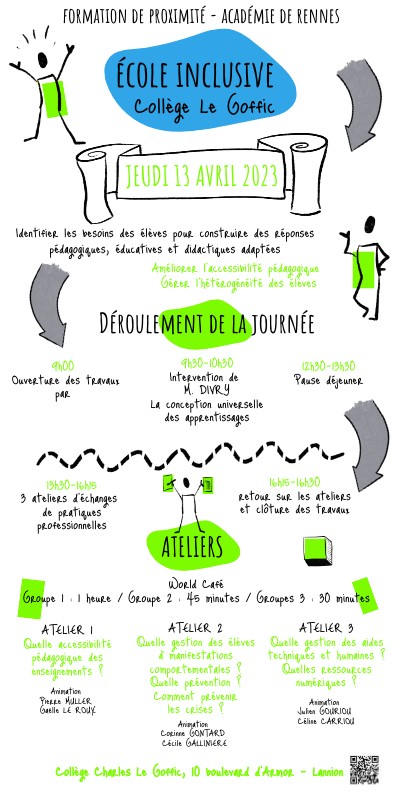 FORMATION DE PROXIMITÉ - ACADÉMIE DE RENNES
ÉCOLE INCLUSIVE
Collège Le Goffic
JEUDI 13 AVRIL 2023
Identifier les besoins des élèves pour construire des réponses
pédagogiques, éducatives et didactiques adaptées
Améliorer l'accessibilité pédagogique
Gérer l'hétérogénéité des élèves
DÉROULEMENT DE LA JOURNÉE
9h00
Ouverture des travaux
par
9h30-10h30
Intervention de
M. DIVRY
La conception universelle
des apprentissages
12h30-13h30
Pause déjeuner
13h30-16h15
3 ateliers d'échanges
de pratiques
professionnelles
16h15-16h30
retour sur les ateliers
et clôture des travaux
ATELIERS
World Café
Groupe 1 : 1 heure / Groupe 2 : 45 minutes / Groupes 3 : 30 minutes
ATELIER 1
Quelle accessibilité
pédagogique des
enseignements ?
Animation
Pierre MULLER
Gaëlle LE ROUX
ATELIER 2
Quelle gestion des élèves
à manifestations
comportementales ?
Quelle prévention ?
Comment prévenir
les crises ?
Animation
Corinne GONTARD
Cécile GALLINIERE
ATELIER 3
Quelle gestion des aides
techniques et humaines ?
Quelles ressources
numériques ?
Animation
Julien GOURIOU
Céline CARRIOU
Collège Charles Le Goffic, 10 boulevard d'Armor - Lannion